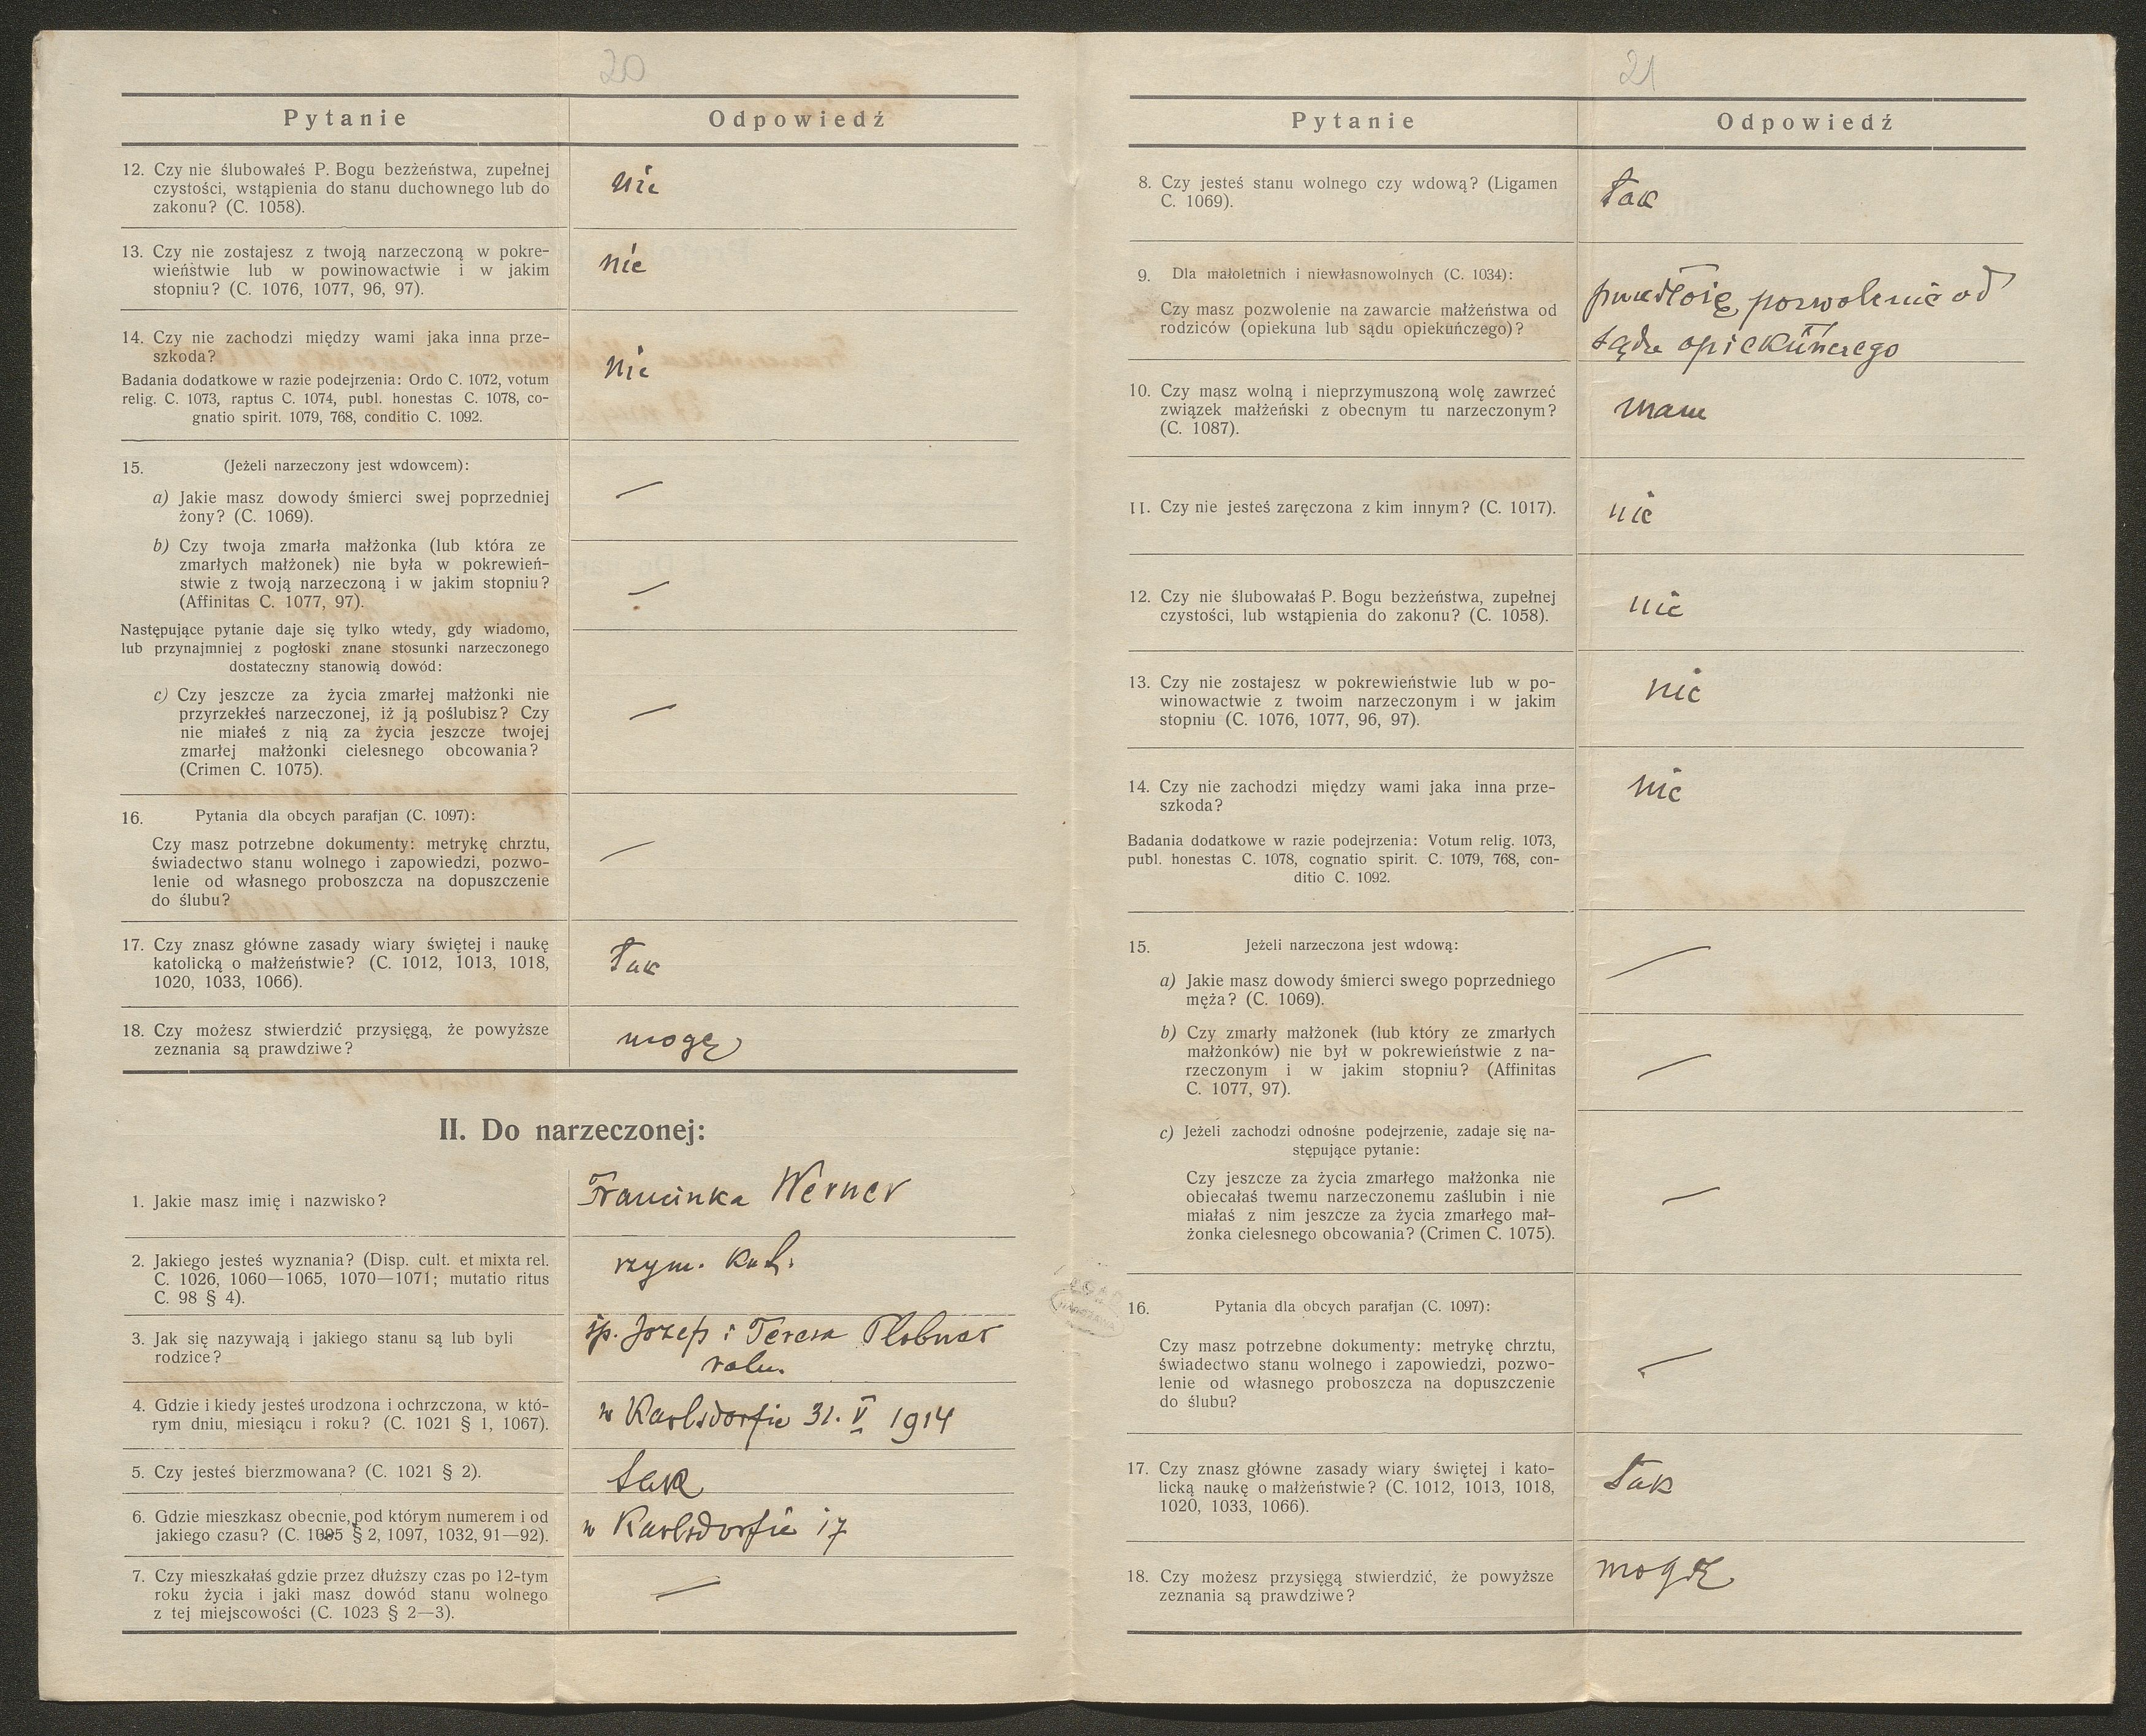 20
Pytanie
Odpowiedź
12. Czy nie ślubowałeś P. Bogu bezżeństwa, zupełnej
czystości, wstąpienia do stanu duchownego lub do
zakonu? (C. 1058).
nie
13. Czy nie zostajesz z twoją narzeczoną w pokre-
wieństwie lub w powinowactwie i w jakim
stopniu? (C. 1076, 1077, 96, 97).
nie
14. Czy nie zachodzi między wami jaka inna prze-
szkoda?
Badania dodatkowe w razie podejrzenia: Ordo C. 1072, votum
relig. C. 1073, raptus C. 1074, publ. honestas C. 1078, co-
gnatio spirit. 1079, 768, conditio C. 1092.
nie
15. (Jeżeli narzeczony jest wdowcem):
a) Jakie masz dowody śmierci swej poprzedniej
żony? (C. 1069).
—
b) Czy twoja zmarła małżonka (lub która ze
zmarłych małżonek) nie była w pokrewień-
stwie z twoją narzeczoną i w jakim stopniu?
(Affinitas C. 1077, 97).
—
Następujące pytanie daje się tylko wtedy, gdy wiadomo,
lub przynajmniej z pogłoski znane stosunki narzeczonego
dostateczny stanowią dowód:
c) Czy jeszcze za życia zmarłej małżonki nie
przyrzekłeś narzeczonej, iż ją poślubisz? Czy
nie miałeś z nią za życia jeszcze twojej
zmarłej małżonki cielesnego obcowania?
(Crimen C. 1075).
—
16. Pytania dla obcych parafjan (C. 1097):
Czy masz potrzebne dokumenty: metrykę chrztu,
świadectwo stanu wolnego i zapowiedzi, pozwo-
lenie od własnego proboszcza na dopuszczenie
do ślubu?
—
17. Czy znasz główne zasady wiary świętej i naukę
katolicką o małżeństwie? (C. 1012, 1013, 1018,
1020, 1033, 1066).
Tak
18. Czy możesz stwierdzić przysięgą, że powyższe
zeznania są prawdziwe?
mogę
II. Do narzeczonej:
1. Jakie masz imię i nazwisko?
Franciszka Werner
2. Jakiego jesteś wyznania? (Disp. cult. et mixta rel.
C. 1026, 1060—1065, 1070—1071; mutatio ritus
C. 98 § 4).
rzym. kat.
3. Jak się nazywają i jakiego stanu są lub byli
rodzice?
śp. Józef i Teresa
roln.
4. Gdzie i kiedy jesteś urodzona i ochrzczona, w któ-
rym dniu, miesiącu i roku? (C. 1021 § 1, 1067).
w Karlsdorfie 31. V 1914
5. Czy jesteś bierzmowana? (C. 1021 § 2).
tak
6. Gdzie mieszkasz obecnie, pod którym numerem i od
jakiego czasu? (C. 1095 § 2, 1097, 1032, 91—92).
w Karlsdorfie 17
7. Czy mieszkałaś gdzie przez dłuższy czas po 12-tym
roku życia i jaki masz dowód stanu wolnego
z tej miejscowości (C. 1023 § 2—3).
—
21
Pytanie
Odpowiedź
8. Czy jesteś stanu wolnego czy wdową? (Ligamen
C. 1069).
Tak
9. Dla małoletnich i niewłasnowolnych (C. 1034):
Czy masz pozwolenie na zawarcie małżeństwa od
rodziców (opiekuna lub sądu opiekuńczego)?
przedłożę pozwolenie od
sądu opiekuńczego
10. Czy masz wolną i nieprzymuszoną wolę zawrzeć
związek małżeński z obecnym tu narzeczonym?
(C. 1087).
mam
11. Czy nie jesteś zaręczona z kim innym? (C. 1017).
nie
12. Czy nie ślubowałaś P. Bogu bezżeństwa, zupełnej
czystości, lub wstąpienia do zakonu? (C. 1058).
nie
13. Czy nie zostajesz w pokrewieństwie lub w po-
winowactwie z twoim narzeczonym i w jakim
stopniu (C. 1076, 1077, 96, 97).
nie
14. Czy nie zachodzi między wami jaka inna prze-
szkoda?
nie
Badania dodatkowe w razie podejrzenia: Votum relig. 1073,
publ. honestas C. 1078, cognatio spirit. C. 1079, 768, con-
ditio C. 1092.
15. Jeżeli narzeczona jest wdową:
a) Jakie masz dowody śmierci swego poprzedniego
męża? (C. 1069).
—
b) Czy zmarły małżonek (lub który ze zmarłych
małżonków) nie był w pokrewieństwie z na-
rzeczonym i w jakim stopniu? (Affinitas
C. 1077, 97).
—
c) Jeżeli zachodzi odnośne podejrzenie, zadaje się na-
stępujące pytanie:
Czy jeszcze za życia zmarłego małżonka nie
obiecałaś twemu narzeczonemu zaślubin i nie
miałaś z nim jeszcze za życia zmarłego mał-
żonka cielesnego obcowania? (Crimen C. 1075).
—
16. Pytania dla obcych parafjan (C. 1097):
Czy masz potrzebne dokumenty: metrykę chrztu,
świadectwo stanu wolnego i zapowiedzi, pozwo-
lenie od własnego proboszcza na dopuszczenie
do ślubu?
—
17. Czy znasz główne zasady wiary świętej i kato-
licką naukę o małżeństwie? (C. 1012, 1013, 1018,
1020, 1033, 1066).
Tak
18. Czy możesz przysięgą stwierdzić, że powyższe
zeznania są prawdziwe?
mogę